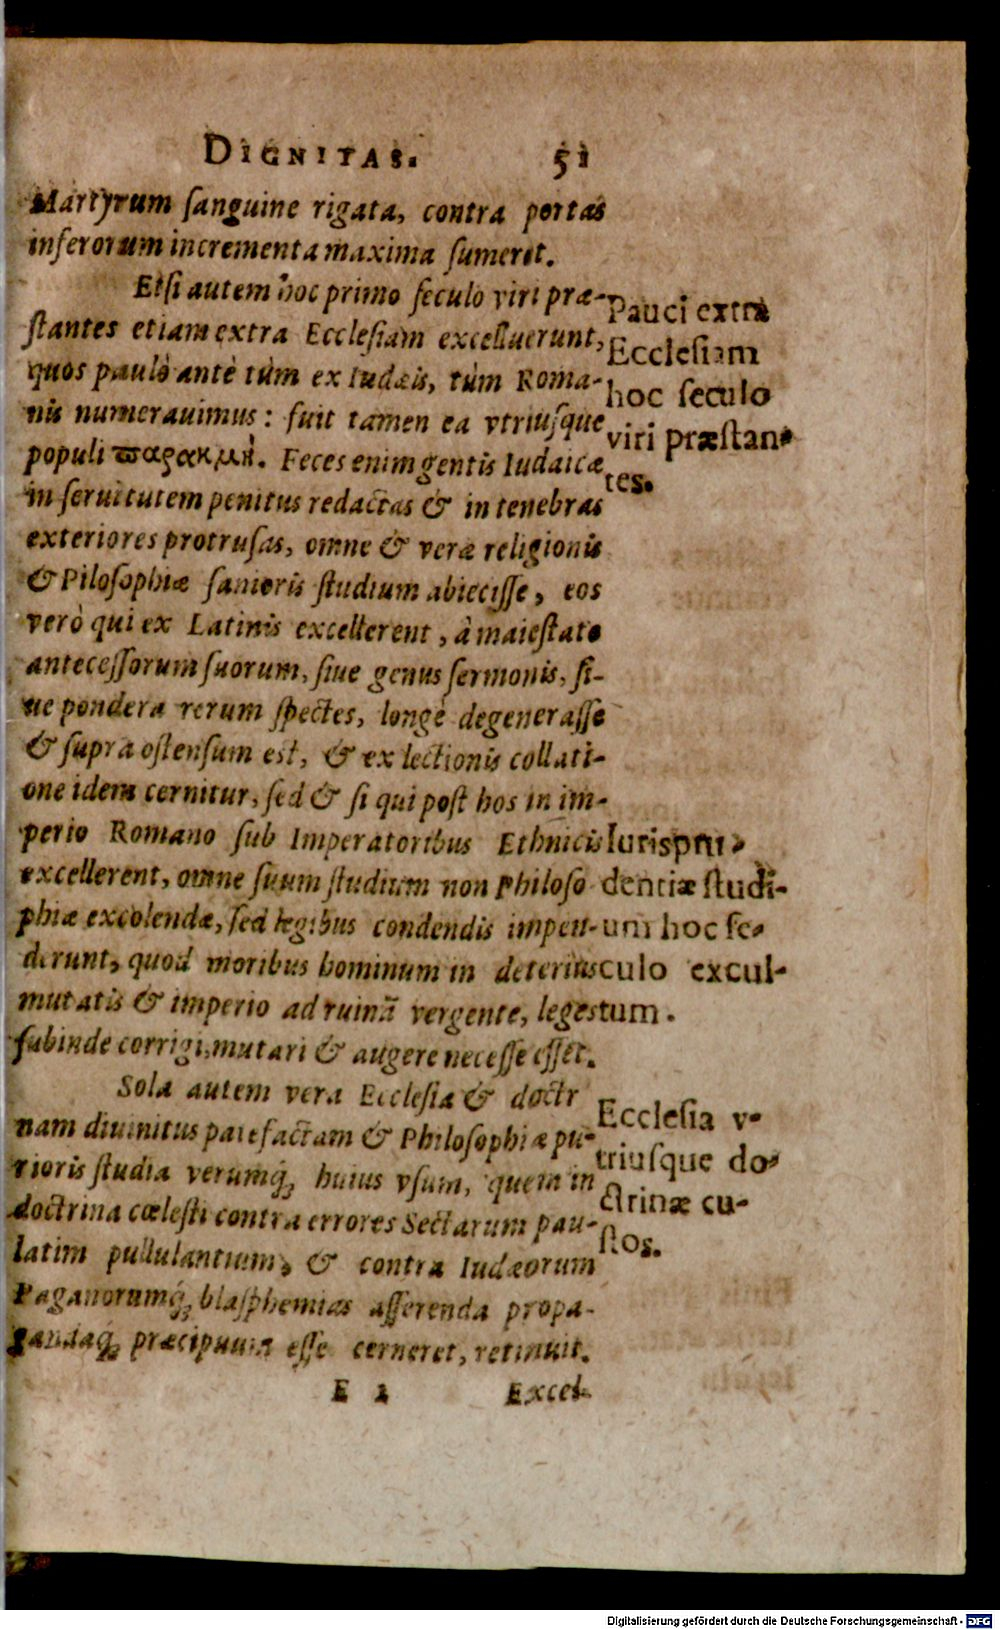 DIGNITAS. 51
Martyrum ſanguine rigata, contra portas
inferorum incrementa maxima ſumeret.
Etſi autem hoc primo ſeculo viri præ-
ſtantes etiam extra Eccleſiam excelluerunt,
quos paulò antè tùm ex Iudæis, tùm Roma-
nis numerauimus: fuit tamen ea vtriuſque
populi ϖαρακμὴ. Feces enim gentis Iudaicæ
in ſeruitutem penitus redactas & in tenebras
exteriores protruſas, omne & veræ religionis
& Piloſophiæ ſanioris ſtudium abieciſſe, eos
verò qui ex Latinis excellerent, à maieſtate
anteceſſorum ſuorum, ſiue genus ſermonis, ſi-
ue pondera rerum ſpectes, longè degeneraſſe
& ſupra oſtenſum est, & ex lectionis collati-
one idem cernitur, ſed & ſi qui poſt hos in im-
perio Romano ſub Imperatoribus Ethnicis
excellerent, omne ſuum ſtudium non Philoſo
phiæ excolendæ, ſed legibus condendis impen-
derunt, quod moribus hominum in deterius
mutatis & imperio ad ruinã vergente, leges
ſubinde corrigi, mutari & augere neceſſe eſſet.
Sola autem vera Eccleſia & doctr
nam diuinitus patefactam & Philoſophiæ pu-
rioris ſtudia verumq́; huius vſum, quem in
doctrina cœleſti contra errores Sectarum pau-
latim pullulantium, & contra Iudæorum
Paganorumq́; blaſphemias aſſerenda propa-
gandaq́; præcipuum eſſe cerneret, retinuit.
E 2 Excel-
Pauci extra
Eccleſiam
hoc ſeculo
viri præſtan-
tes.
Iurispru-
dentiæ ſtudi-
um hoc ſe-
culo excul-
tum.
Eccleſia v-
triuſque do-
ctrinæ cu-
ſtos.
Digitalisierung gefördert durch die Deutsche Forschungsgemeinschaft - DFG